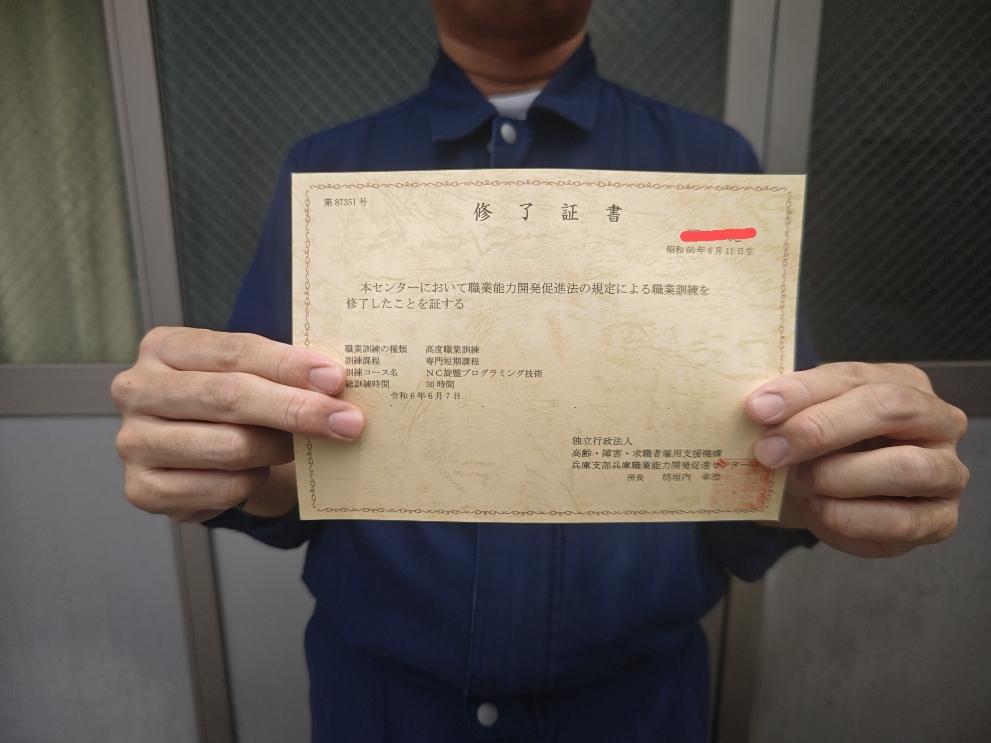 第 87351 号
修了証書
昭和60年8月11日生
本センターにおいて職業能力開発促進法の規定による職業訓練を
修了したことを証する
職業訓練の種類 高度職業訓練
訓練課程 専門短期課程
訓練コース名 NC旋盤プログラミング技術
総訓練時間 30時間
令和6年6月7日
独立行政法人
高齢・障害・求職者雇用支援機構
兵庫支部兵庫職業能力開発促進センター
所長 坊垣内